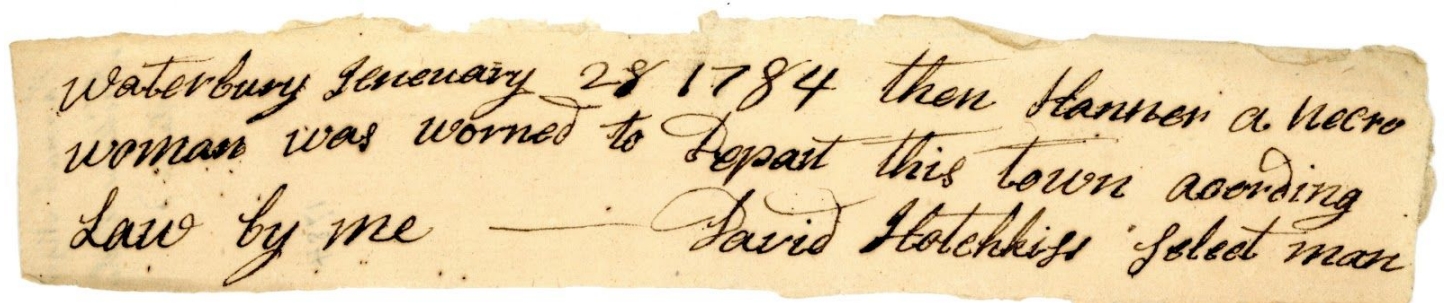 Waterbury Jeneuary 28 1784 then Hanner a necro
woman was worned to Depart this town acording
Law by me — David Hotchkiss Select man